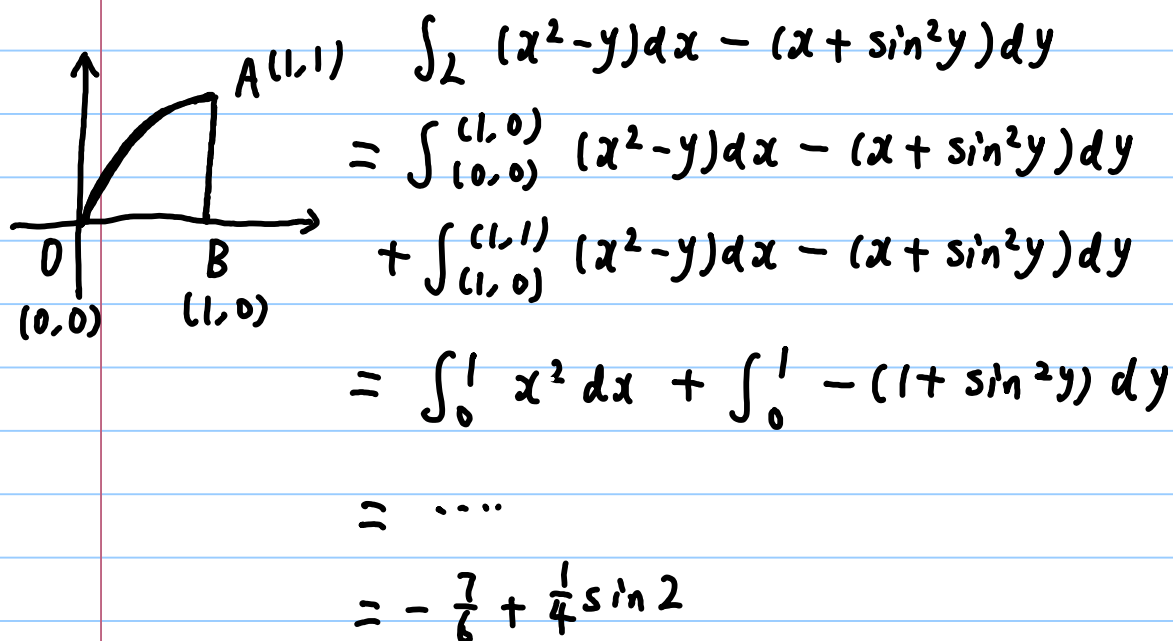 A(1,1)
O
B
(0,0)
(1,0)
∫_L (x²-y)dx - (x + sin²y)dy
= ∫_(0,0)^(1,0) (x²-y)dx - (x + sin²y)dy
+ ∫_(1,0)^(1,1) (x²-y)dx - (x + sin²y)dy
= ∫_0^1 x² dx + ∫_0^1 -(1+ sin²y) dy
= ....
= - 7/6 + 1/4 sin 2